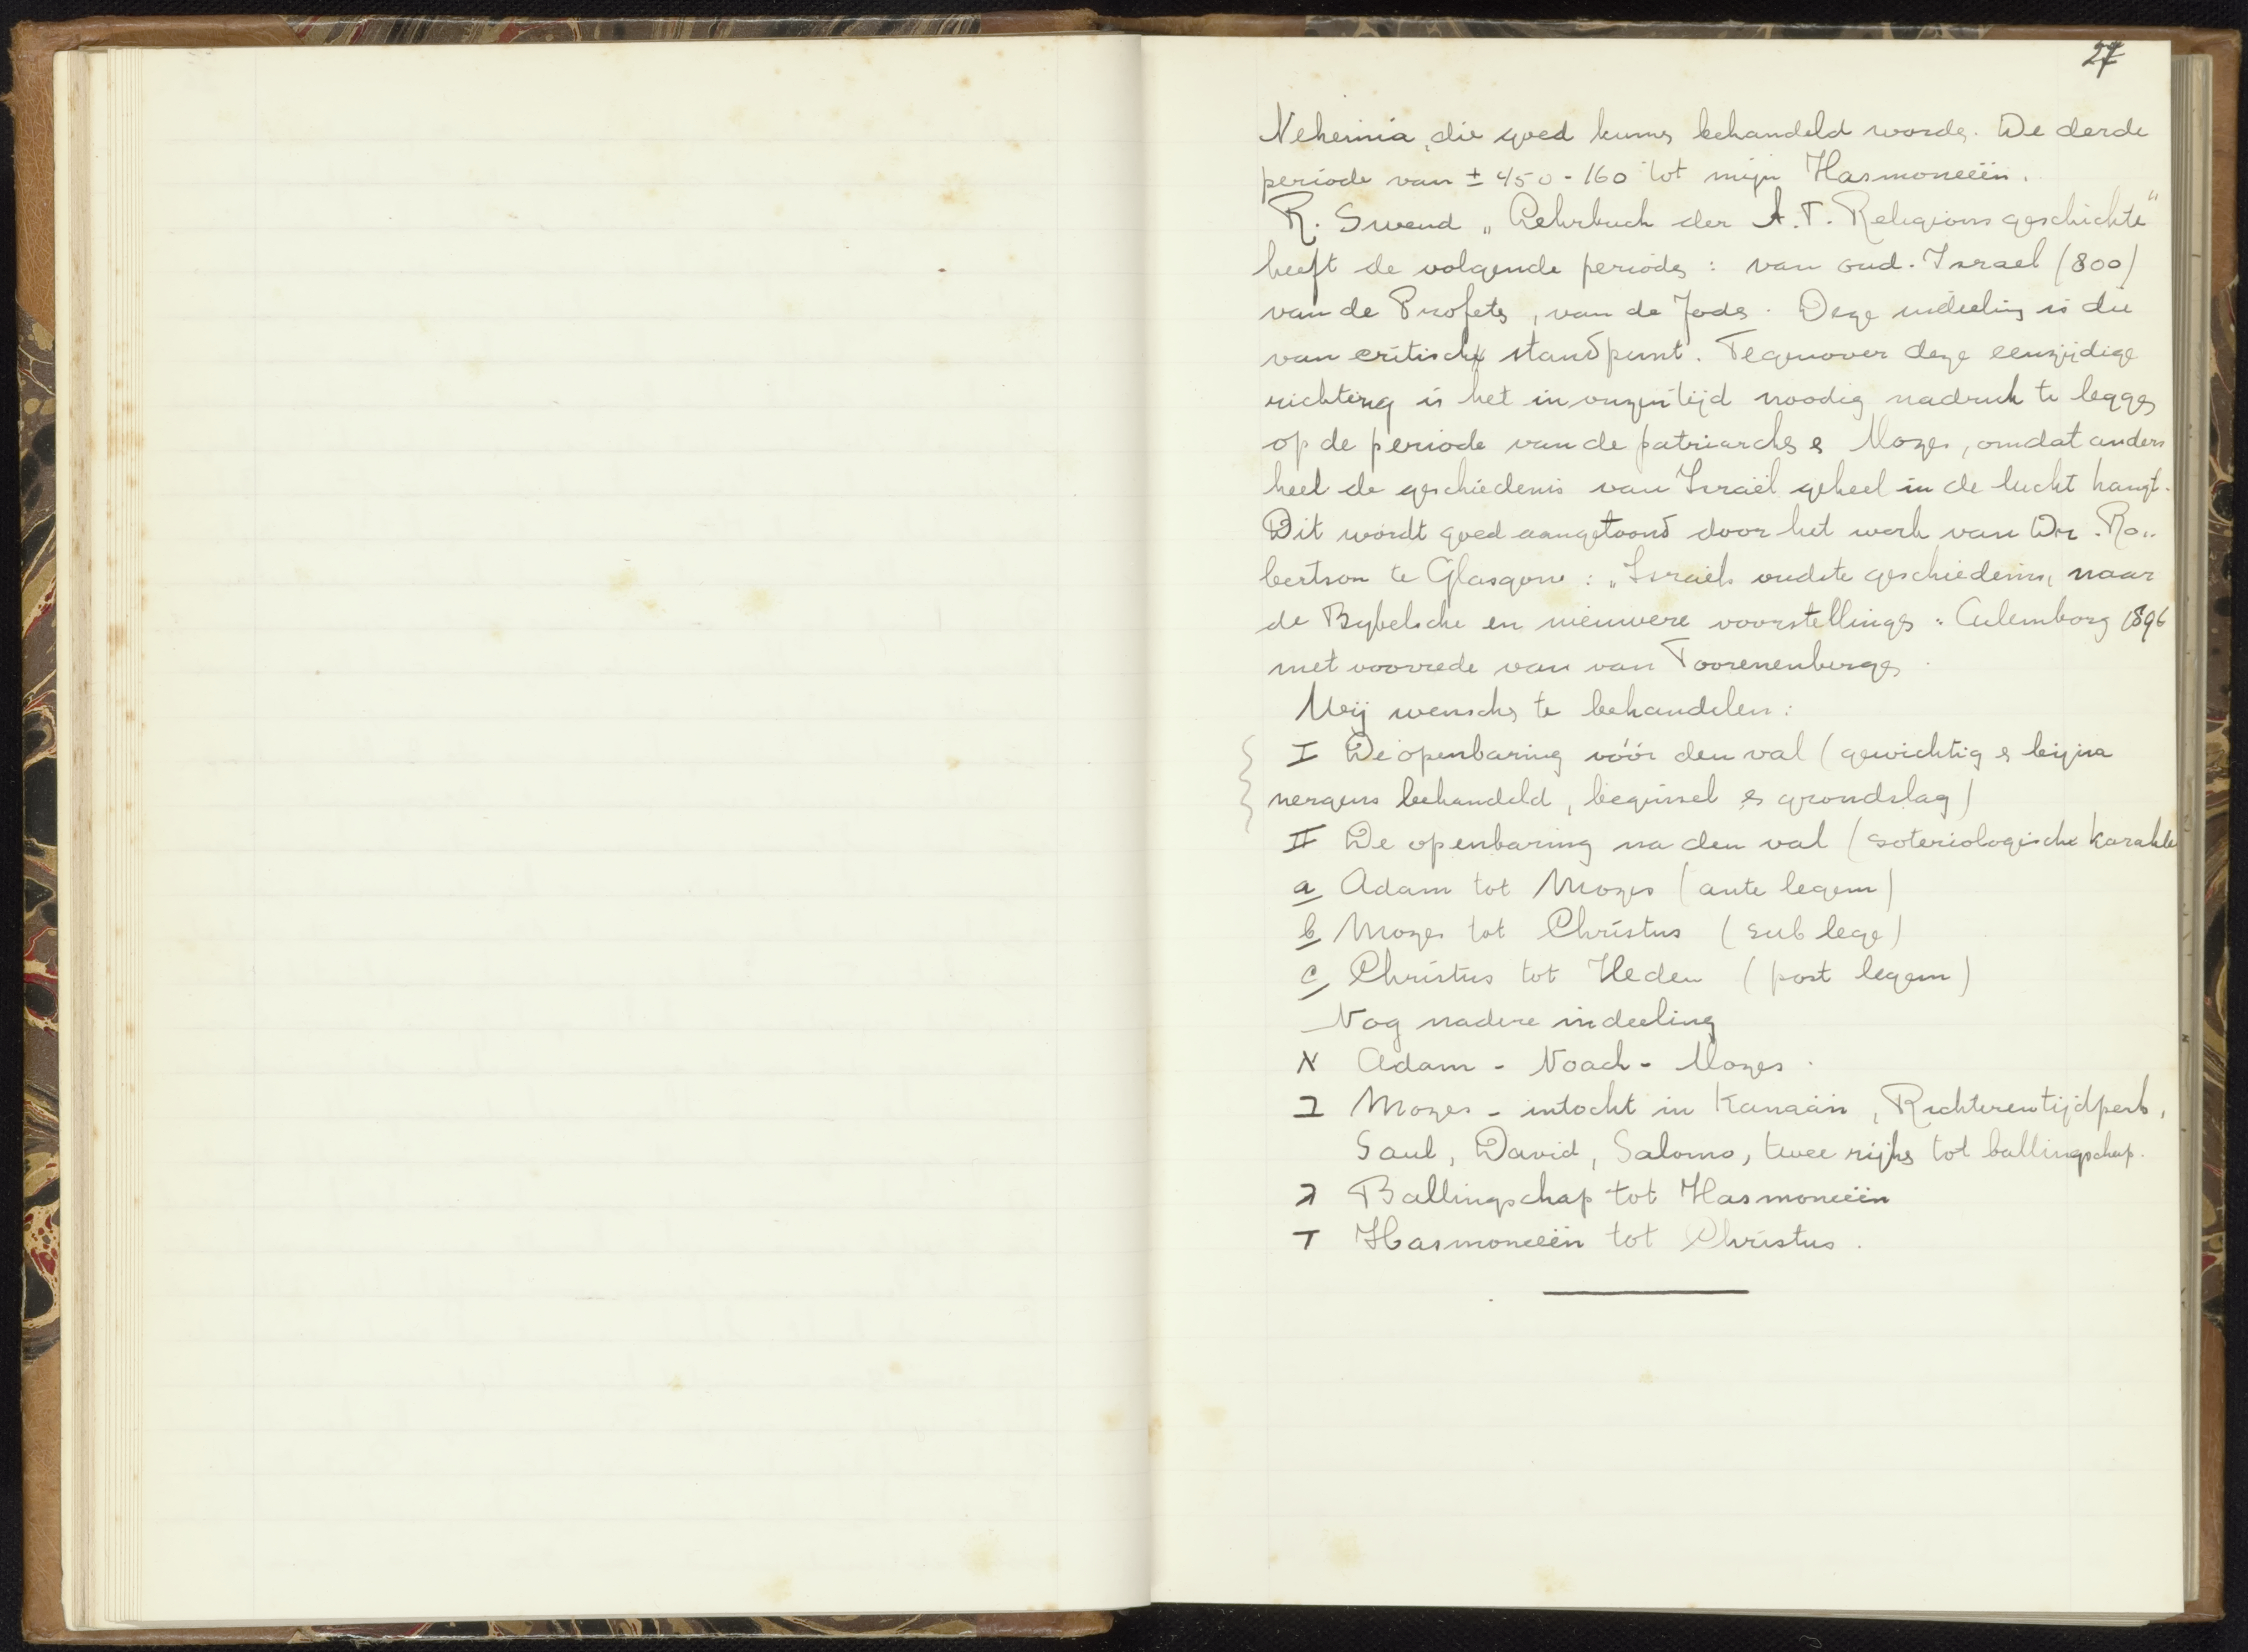 27
Nehemia, die goed kunn behandeld worden. De derde
periode van ± 450 - 160 tot mijn Hasmoneeën.
R. Smend „Lehrbuch der A.T. Religionsgeschichte“
heeft de volgende perioden : van oud-Israel (800)
van de Profeten, van de Joden. Deze indeeling is die
van critisch standpunt. Tegenover deze eenzijdige
richting is het in onzen tijd noodig nadruk te leggen
op de periode van de patriarchen en Mozes, omdat anders
heel de geschiedenis van Israël geheel in de lucht hangt.
Dit wordt goed aangetoond door het werk van Dr. Ro„
bertson te Glasgow : „Israëls oudste geschiedenis, naar
de Bybelsche en nieuwere voorstellingen. Culemborg 1896
met voorrede van van Toorenenbergen.
Wij wenschen te behandelen :
I De openbaring vóór den val (gewichtig en bijna
nergens behandeld, beginsel en grondslag)
II De openbaring na den val (soteriologische karakte
a Adam tot Mozes (ante legem)
b Mozes tot Christus (sub lege)
c Christus tot Heden (post legem)
Nog nadere indeeling
א Adam - Noach - Mozes.
ב Mozes - intocht in Kanaän, Richterentijdperk,
Saul, David, Salomo, twee rijken tot ballingschap.
ג Ballingschap tot Hasmoneeën
ד Hasmoneeën tot Christus.